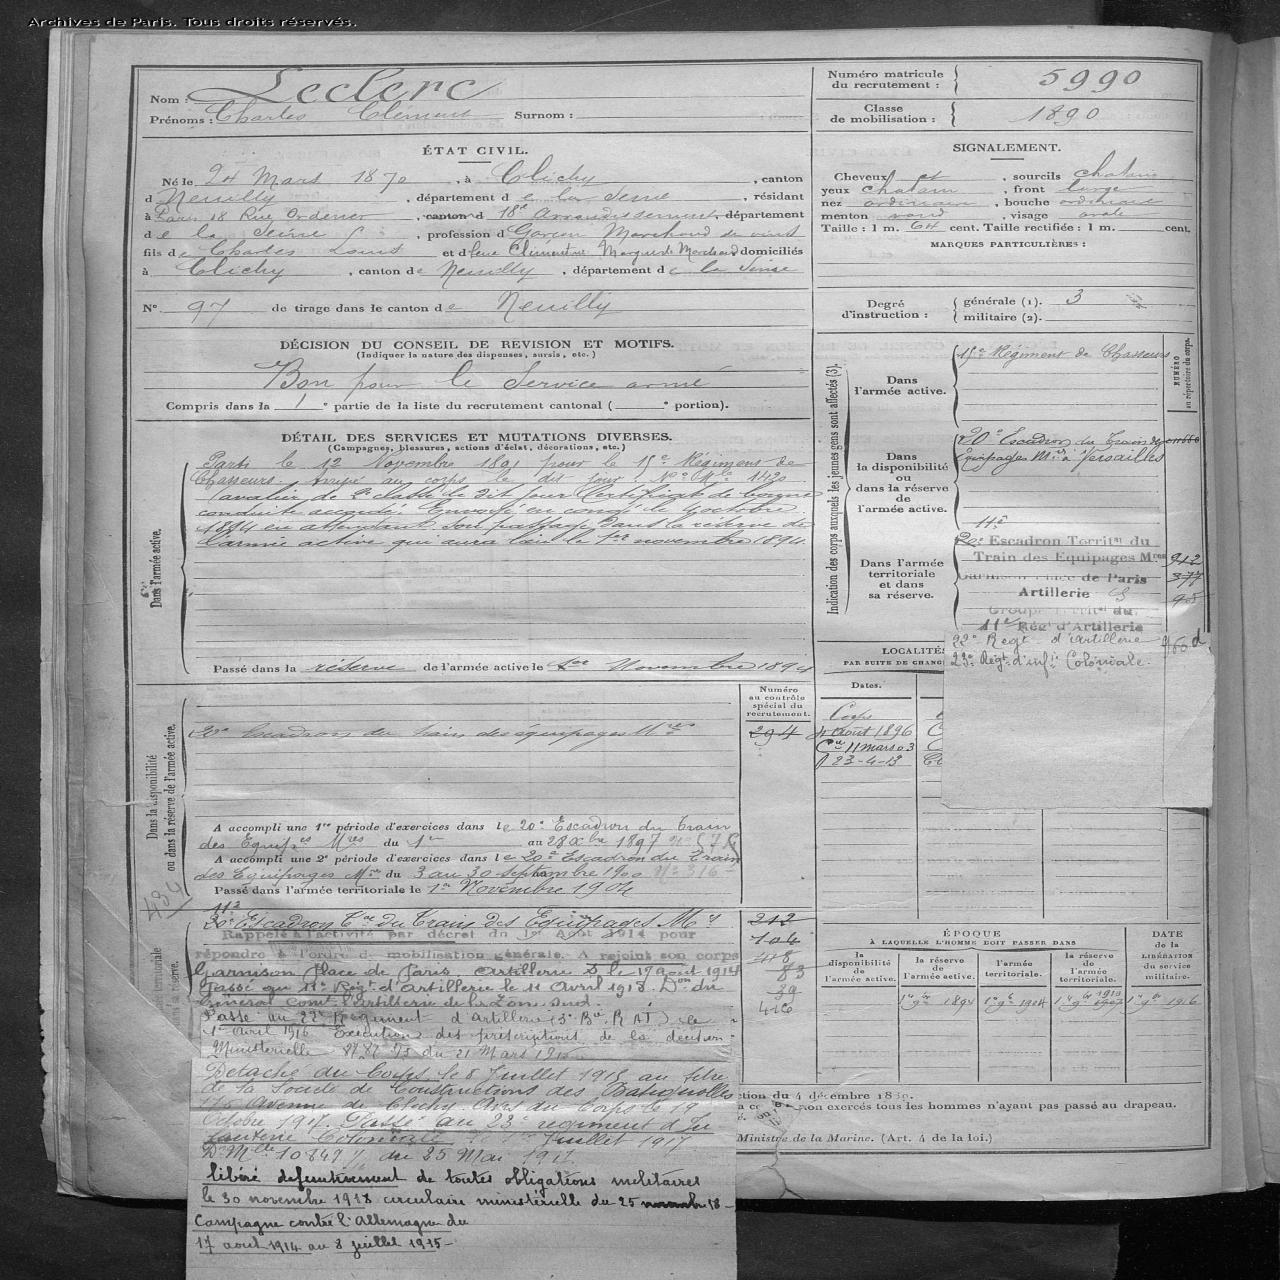 Archives de Paris. Tous droits réservés.
Nom : Leclerc
Prénoms : Charles Clément Surnom :
Numéro matricule du recrutement : 5990
Classe de mobilisation : 1890
ÉTAT CIVIL.
Né le 24 Mars 1870, à Clichy, canton
d Neuilly, département de la Seine, résidant
à Paris 18 Rue Ordener, canton d 18e Arrondissement, département
de la Seine, profession d Garçon Marchand de vins
fils de Charles Louis et d feue Clémentine Marchand domiciliés
à Clichy, canton de Neuilly, département de la Seine
SIGNALEMENT.
Cheveux et , sourcils chatains
yeux chatain , front large
nez ordinaire , bouche ordinaire
menton rond , visage ovale
Taille : 1 m. 64 cent. Taille rectifiée : 1 m. cent.
MARQUES PARTICULIÈRES :
N° 97 de tirage dans le canton de Neuilly
Degré d'instruction : générale (1). 3
militaire (2).
DÉCISION DU CONSEIL DE RÉVISION ET MOTIFS.
(Indiquer la nature des dispenses, sursis, etc.)
Bon pour le Service armé
Compris dans la 1e partie de la liste du recrutement cantonal ( e portion).
DÉTAIL DES SERVICES ET MUTATIONS DIVERSES.
(Campagnes, blessures, actions d'éclat, décorations, etc.)
Dans l'armée active.
Parti le 12 Novembre 1891 pour le 15e Régiment de
Chasseurs. Arrivé au corps le dit jour. No Mle 1420
Cavalier de 2e classe le dit jour. Certificat de bonne
conduite accordé. Envoyé en congé le octobre
1894 en attendant son passage dans la réserve de
l'armée active qui aura lieu le 1er novembre 1894
Passé dans la réserve de l'armée active le 1er Novembre 1894
Indication des corps auxquels les jeunes gens sont affectés (3).
NUMÉRO au répertoire du corps.
Dans l'armée active.
15e Régiment de Chasseurs
Dans la disponibilité ou dans la réserve de l'armée active.
20e Escadron du Train des
Equipages Mres à Versailles
Dans l'armée territoriale et dans sa réserve.
11e
20e Escadron Territal du
Train des Equipages Mres 942
Garnison Place de Paris 377
Artillerie S
Groupe Territal du
11e Régt d'Artillerie
22e Régt d'Artillerie
23e Régt d'infie Coloniale.
LOCALITÉS
PAR SUITE DE CHANG
Dates.
Corps
4 août 1896
Cre 11 mars 03
23-4-13
Dans la disponibilité ou dans la réserve de l'armée active.
Numéro au contrôle spécial du recrutement.
20e Escadron du train des équipages Mres 294
A accompli une 1re période d'exercices dans le 20e Escadron du Train
des Equipes Mres du 1er au 28 Xbre 1897
A accompli une 2e période d'exercices dans le 20e Escadron du Train
des Equipages Mres du 3 au 30 Septembre 1900 No 316
Passé dans l'armée territoriale le 1er Novembre 1904
434
11e
20e Escadron Tal du Train des Equipages Mres 212
Rappelé à l'activité par décret du 1er Août 1914 pour 104
répondre à l'ordre de mobilisation générale. A rejoint son corps 418
Garnison Place de Paris. Artillerie S le 17 août 1914 83
Passé au 11e Régt d'Artillerie le 11 Avril 1918. Don du 39
Général Comt l'artillerie de la Zone Sud. 416
Passé au 22e Régiment d'artillerie (3e Bie R A T) le
1er Avril 1916 Exécution des prescriptions de la décision
Ministérielle du 21 Mars 1916
Détaché du Corps le 8 Juillet 1915 au titre
de la Société de Constructions des Batignolles
176 Avenue de Clichy. Avis du Corps le 19
Octobre 1917. Passé au 23e régiment d'In
fanterie Coloniale le 1er Juillet 1917
D Mlle 10847 du 25 Mai 1917
libéré définitivement de toutes obligations militaires
le 30 novembre 1918 circulaire ministérielle du 25 novembre 18
Campagne contre l'Allemagne du
17 août 1914 au 8 juillet 1915
ÉPOQUE
À LAQUELLE L'HOMME DOIT PASSER DANS
DATE de la LIBÉRATION du service militaire.
la disponibilité de l'armée active.
la réserve de l'armée active.
l'armée territoriale.
la réserve de l'armée territoriale.
1er 9bre 1894
1er 9bre 1904
1er 9bre 1910
1er 9bre 1916
ction du 4 décembre 1889.
non exercés tous les hommes n'ayant pas passé au drapeau.
Ministre de la Marine. (Art. 4 de la loi.)